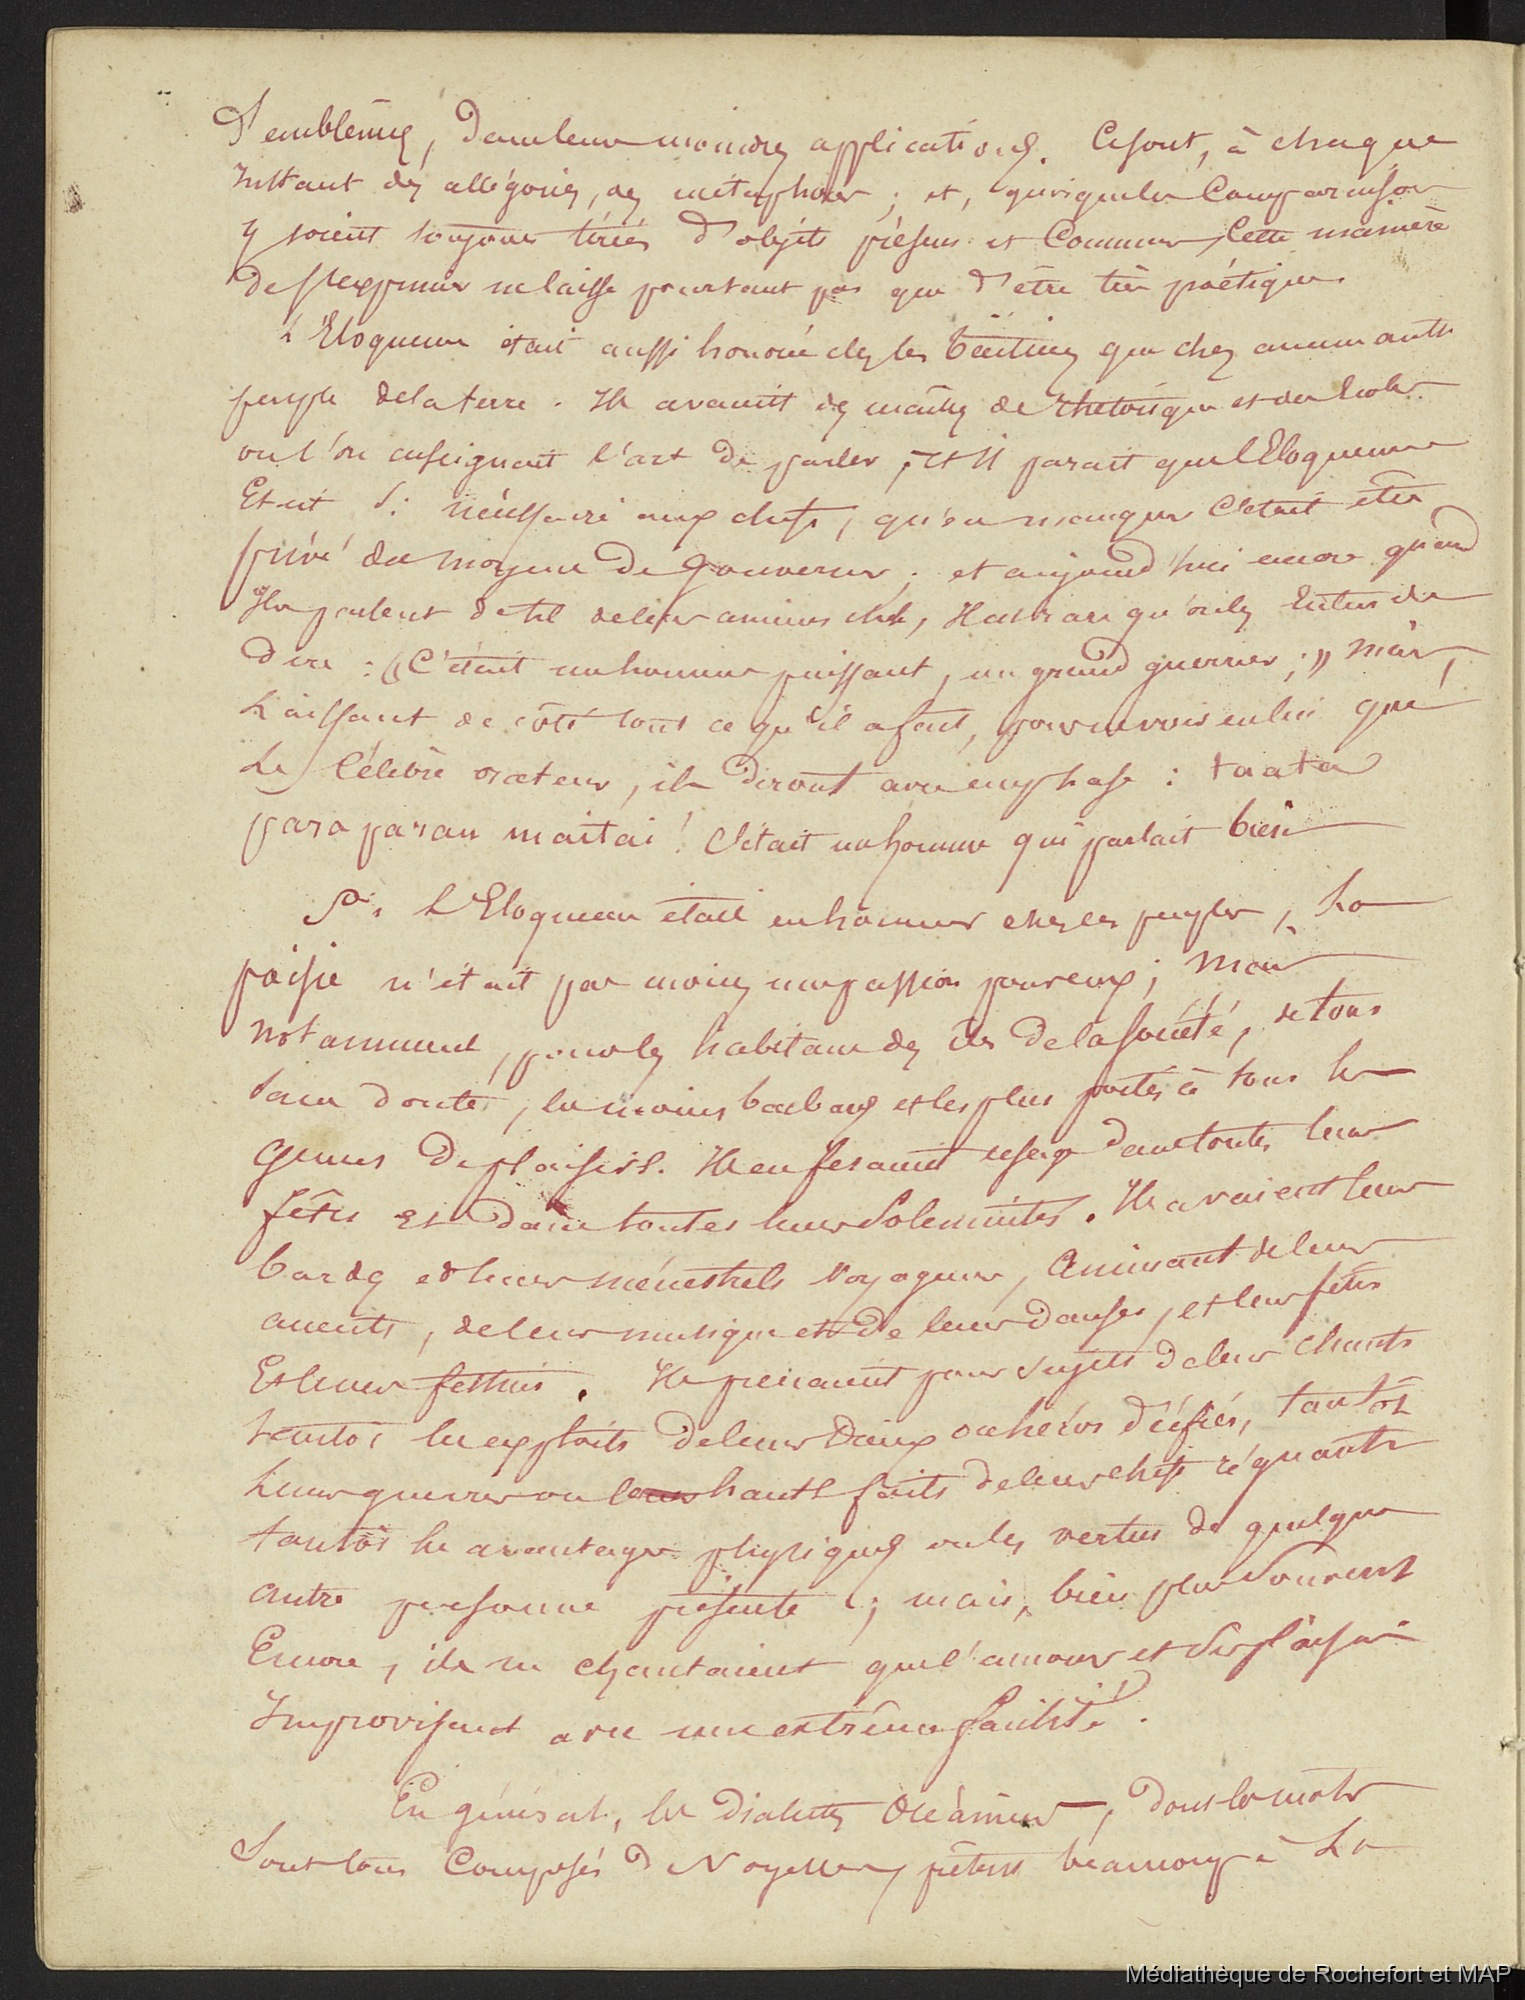 d'emblêmes, dans leurs moindres applications. Ce sont, à chaque
Instant des allégories, des métaphores ; et, quoique les Comparaisons
y soient toujours tirées d'objets présens et Communs, Cette manière
de s'exprimer ne laisse pourtant pas que d'être très poétique.
L'Eloquence était aussi honorée chez les taïtiens que chez aucun autre
peuple de la terre. Ils avaient des maîtres de rhetorique et des Ecoles
ou l'on enseignait l'art de parler ; et Il parait que l'Eloquence
Etait si nécessaire aux chefs, qu'en manquer C'était être
privé du moyen de Gouverner ; et aujourd'hui encore quand
Ils parlent de tel de leurs anciens chefs, Il est rare qu'on les Entende
dire : « C'était un homme puissant, un grand guerrier ; » mais,
Laissant de côté tout ce qu'il a fait, pour ne voir en lui que
Le Célèbre orateur, ils diront avec emphase : taata
paraparau maitai ! C'était un homme qui parlait bien
Si L'Eloquence était en honneur chez ces peuples, La
poésie n'était pas moins une passion pour eux ; mais
notamment, pour les habitans des îles de la société, de tous
sans doute, les moins barbares et les plus portés à tous les
Genres de plaisirs. Ils en fesaient usage dans toutes leurs
fêtes et dans toutes leurs Solennités. Ils avaient leurs
bardes et leurs ménestrels voyageurs, Animant de leurs
accents, de leur musique et de leurs danses, et leurs fêtes
Et leurs festins. Ils prenaient pour sujets de leurs Chants
tantôt les exploits de leurs Dieux ou héros déifiés, tantôt
Leurs guerres ou leurs hauts faits de leurs chefs régnants
tantôt les avantages physiques ou les vertus de quelque
autre personne présente ; mais, bien plus Souvent
Encore, ils ne chantaient que l'amour et Ses plaisirs
Improvisant avec une extrême facilité.
En général, les dialectes Océaniens, dont les mots
Sont tous Composés de Voyelles, prêtent beaucoup à La
Médiathèque de Rochefort et MAP